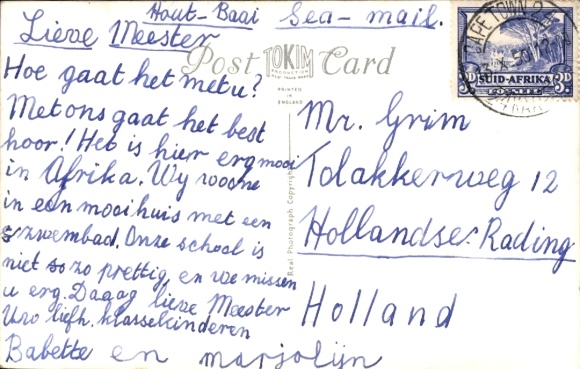 Hout-Baai Sea-mail.
Lieve Meester
Hoe gaat het met u?
Met ons gaat het best
hoor! Het is hier erg mooi
in Afrika. Wy woone
in een mooi huis met een
zwembad. Onze school is
niet zo zo prettig, en we missen
u erg. Daaag lieve Meester
Uw liefh. klassekinderen
Babette en marjolijn
Post Card
TOKIM
PRODUCTION
PRINTED
IN
ENGLAND
Real Photograph Copyright
CAPE TOWN
SUID-AFRIKA
3D 3D
POSSEËL
Mr. Grim
Tolakkerweg 12
Hollandse Rading
Holland